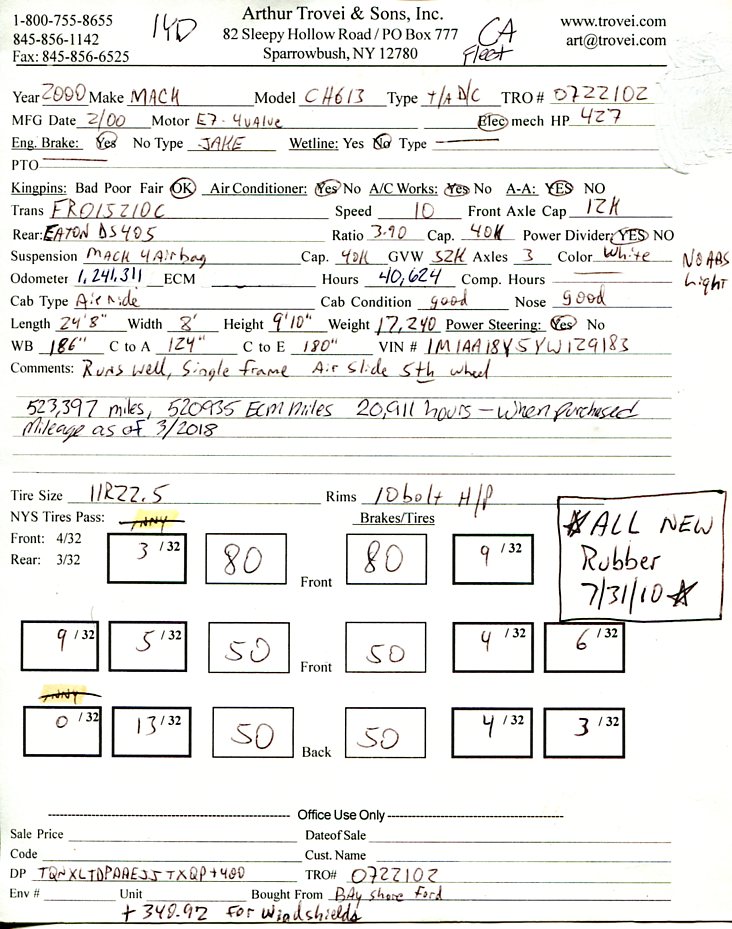 1-800-755-8655
845-856-1142
Fax: 845-856-6525
14D
Arthur Trovei & Sons, Inc.
82 Sleepy Hollow Road / PO Box 777
Sparrowbush, NY 12780
CA
Fleet
www.trovei.com
art@trovei.com
Year 2000 Make MACK Model CH613 Type T/A D/C TRO# 0722102
MFG Date 2/00 Motor E7-4valve Elec mech HP 427
Eng. Brake: Yes No Type JAKE Wetline: Yes No Type —
PTO —
Kingpins: Bad Poor Fair OK Air Conditioner: Yes No A/C Works: Yes No A-A: YES NO
Trans FRO15210C Speed 10 Front Axle Cap 12K
Rear: EATON DS405 Ratio 3.90 Cap. 40K Power Divider: YES NO
Suspension MACK 4 Airbag Cap. 40K GVW 52K Axles 3 Color White
NO ABS
Light
Odometer 1,241,311 ECM Hours 40,624 Comp. Hours —
Cab Type Air Ride Cab Condition good Nose good
Length 24'8" Width 8' Height 9'10" Weight 17,240 Power Steering: Yes No
WB 186" C to A 124" C to E 180" VIN # 1M1AA18Y5YW129183
Comments: Runs well, Single frame Air Slide 5th wheel
523,397 miles, 520935 ECM miles 20,911 hours - when purchased
Mileage as of 3/2018
Tire Size 11R22.5 Rims 10 bolt H/P
NYS Tires Pass: Brakes/Tires
Front: 4/32
Rear: 3/32
3 /32 80 Front 80 9 /32
*ALL NEW
Rubber
7/31/10*
9 /32 5 /32 50 Front 50 4 /32 6 /32
0 /32 13 /32 50 Back 50 4 /32 3 /32
Office Use Only
Sale Price Date of Sale
Code Cust. Name
DP TQNXLTDPAAEJJTXQP+400 TRO# 0722102
Env # Unit Bought From BAy shore Ford
+ 340.92 For Windshields